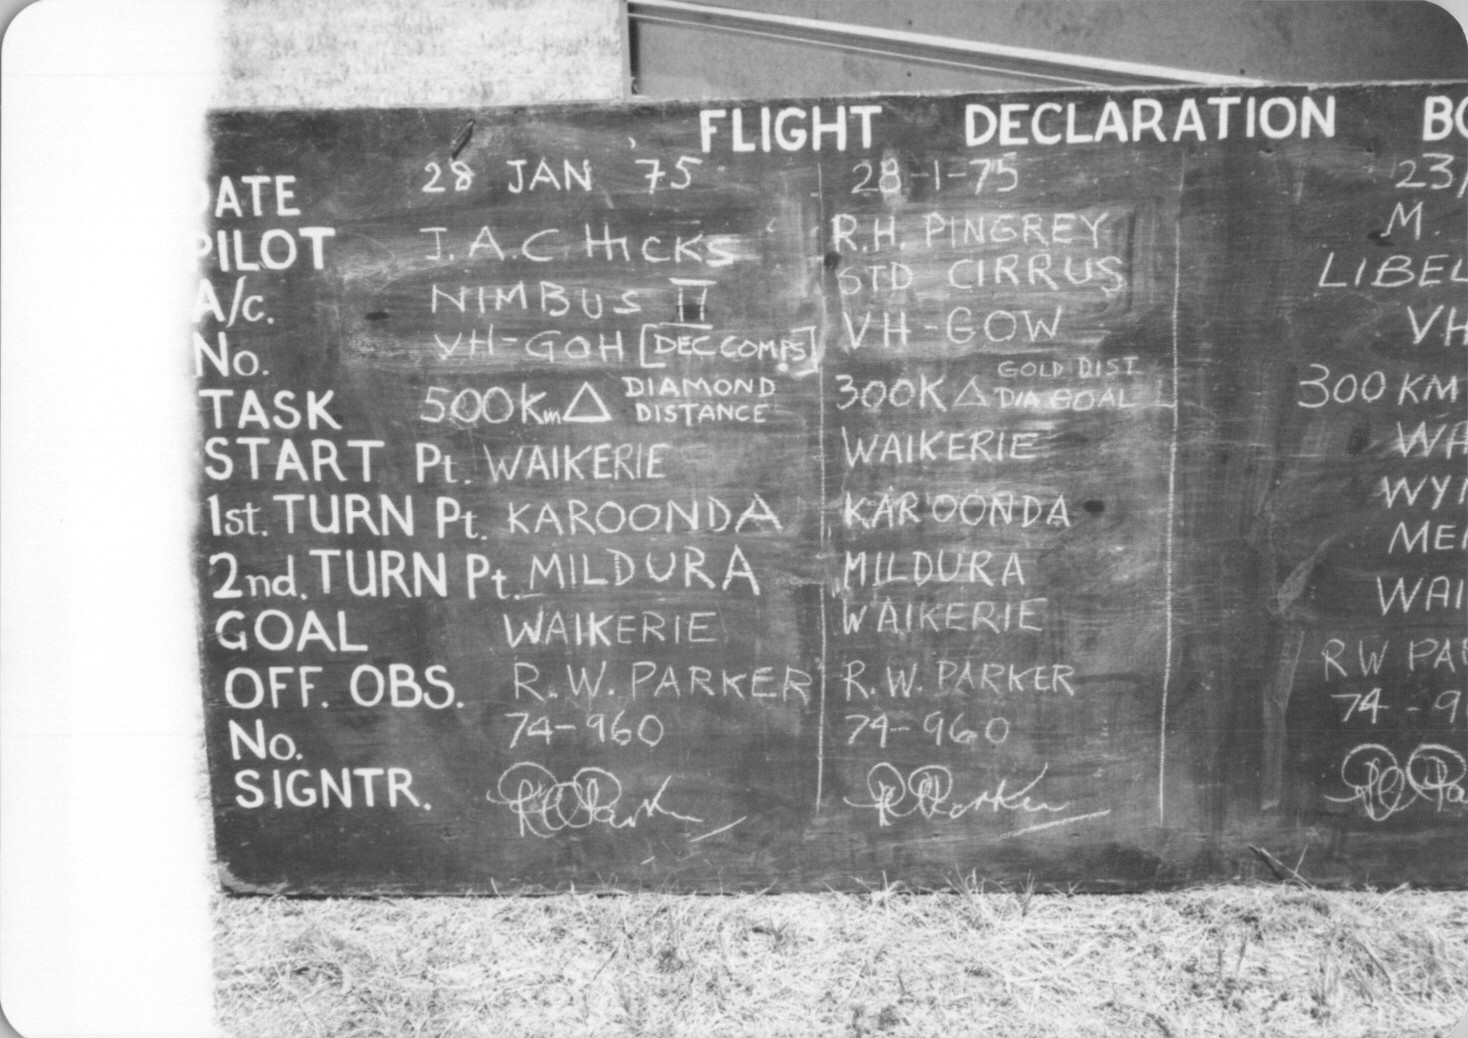 FLIGHT DECLARATION BO
DATE 28 JAN 75 28-1-75 23/
PILOT J.A.C HICKS R.H. PINGREY M.
A/c. NIMBUS II STD CIRRUS LIBEL
No. VH-GOH [DEC COMPS] VH-GOW VH
TASK 500Km △ DIAMOND DISTANCE 300K △ GOLD DIST. DIA GOAL 300 KM
START Pt. WAIKERIE WAIKERIE WA
1st. TURN Pt. KAROONDA KAROONDA WYN
2nd. TURN Pt. MILDURA MILDURA MER
GOAL WAIKERIE WAIKERIE WAI
OFF. OBS. R.W. PARKER R.W. PARKER RW PAR
No. 74-960 74-960 74-9
SIGNTR. RWParker RWParker RWPa